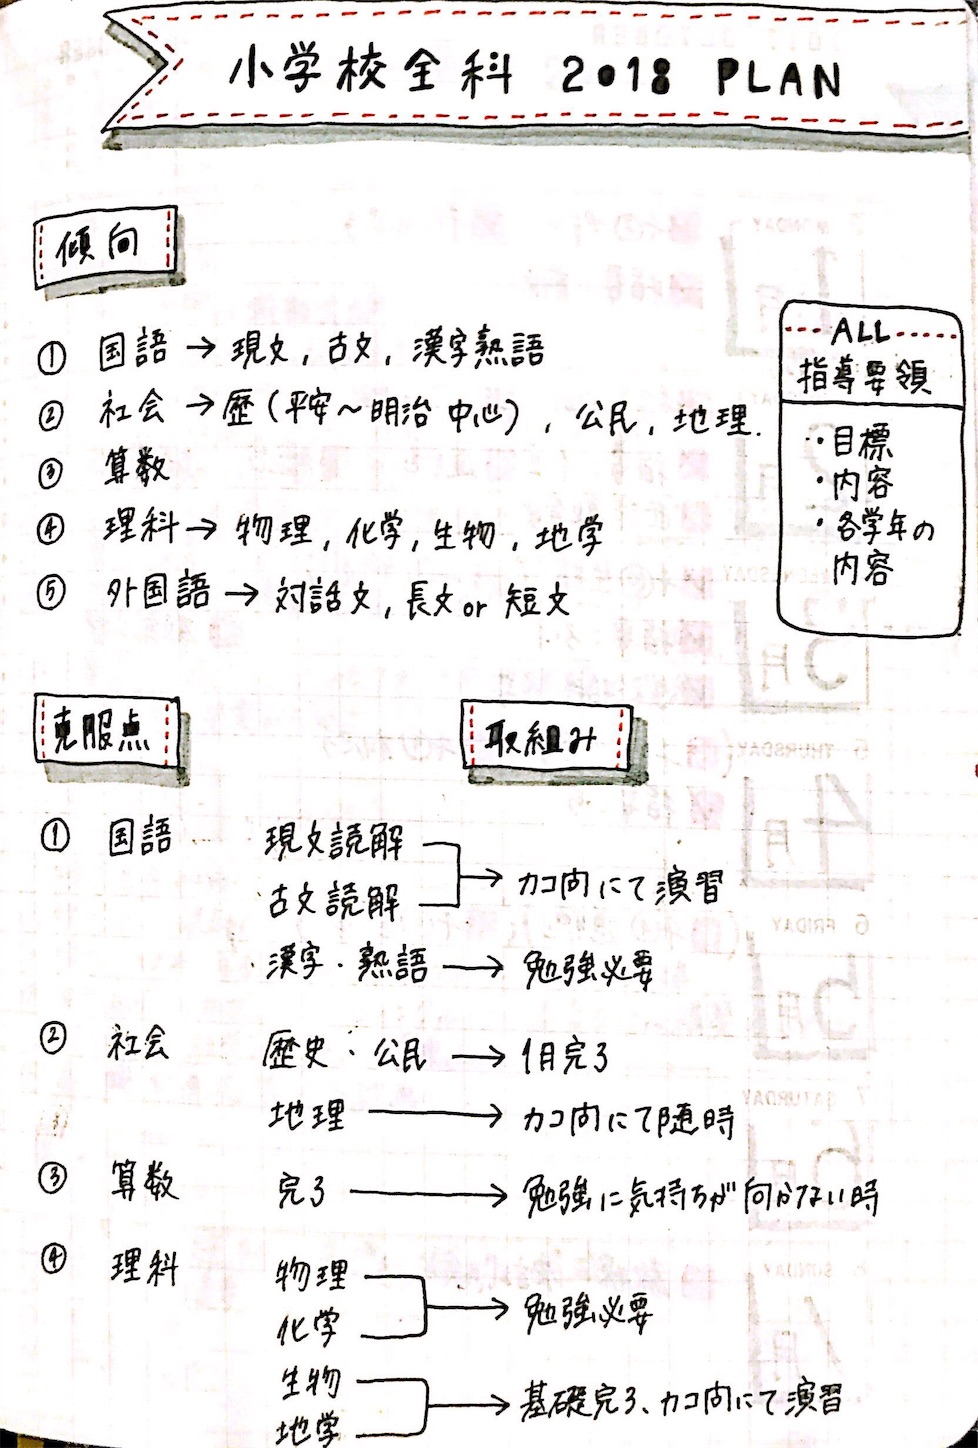 小学校全科 2018 PLAN
傾向
① 国語 → 現文, 古文, 漢字熟語
② 社会 → 歴(平安～明治 中心), 公民, 地理.
③ 算数
④ 理科 → 物理, 化学, 生物, 地学
⑤ 外国語 → 対話文, 長文 or 短文
ALL
指導要領
・目標
・内容
・各学年の
内容
克服点
取組み
① 国語 現文読解
古文読解 → カコ問にて演習
・漢字・熟語 → 勉強必要
② 社会 歴史・公民 → 1月完了
地理 → カコ問にて随時
③ 算数 完了 → 勉強に気持ちが向かない時
④ 理科 物理
化学 → 勉強必要
生物
地学 → 基礎完了、カコ問にて演習
MONDAY
1月
THURSDAY
4月
6 FRIDAY
5月
7 SATURDAY
SUNDAY